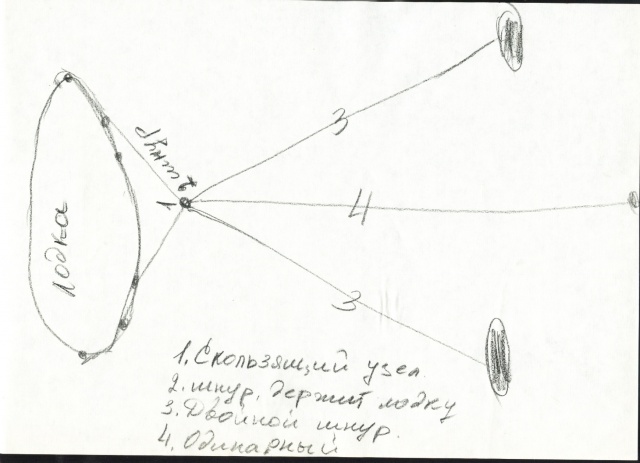 3
шнур
2
1
4
лодка
3
1. Скользящий узел.
2. шнур, держит лодку
3. Двойной шнур.
4. Одинарный